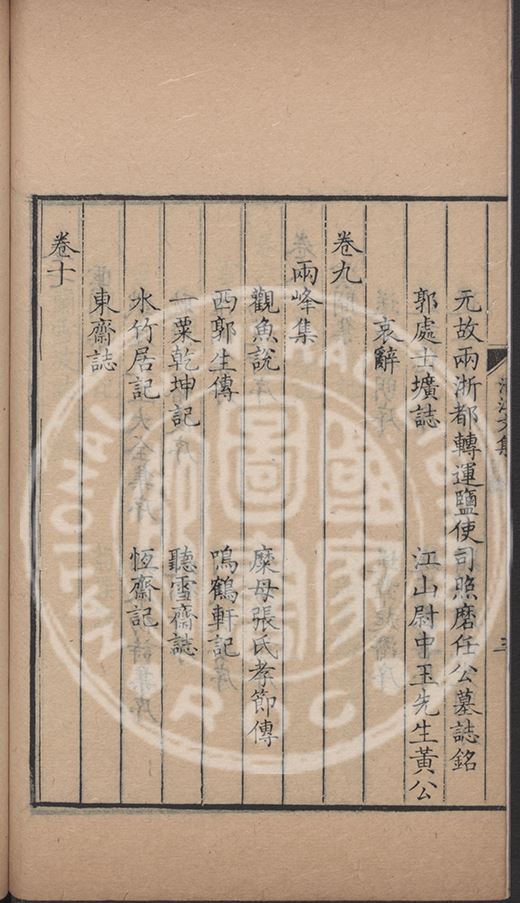 元故兩浙都轉運鹽使司照磨任公墓誌銘
郭處士壙誌 江山尉申玉先生黃公
哀辭
卷九
兩峰集
觀魚說 糜母張氏孝節傳
西郭生傳 鳴鶴軒記
一粟乾坤記 聽雪齋誌
水竹居記 恆齋記
東齋誌
卷十